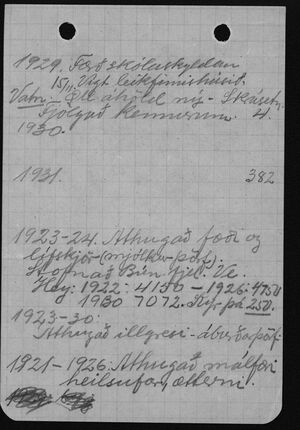 1929. Færð skólaskyldan
15/11. Vígt leikfimishúsið.
Vatn. Öll áhöld ný - Skásett.
Fjölgað kennurum. 4.
1930.
1931. 382
1923-24. Athugað fæði og
lífskjör (mjólkur-þörf).
Stofnað Bún. fjel. Ve.
Hey: 1922: 4150 - 1926: 4750
1930 7072. Kýr þá 250.
1923-30:
Athugað illgresi - áburðaþörf.
1921-1926: Athugað málfar,
heilsufar, ætterni.